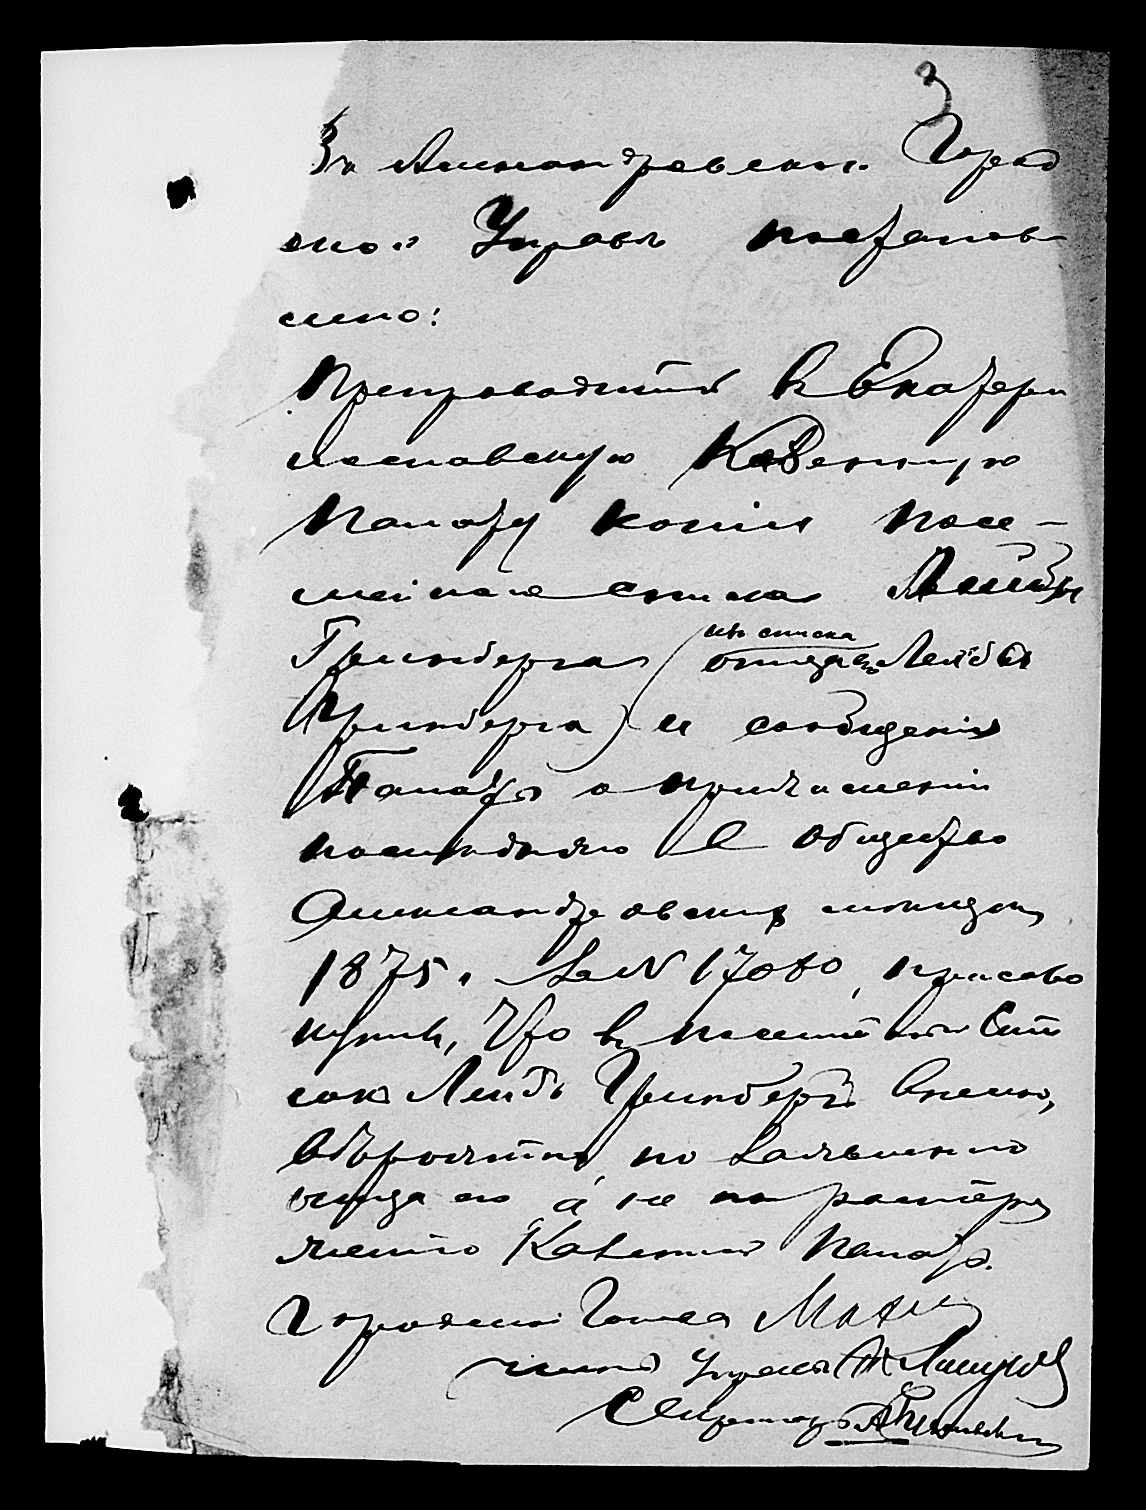 3
Въ Александровской Город
ской Управѣ постанов
лено:
Препроводить въ Екатери
нославскую Казенную
Палату копію посе-
мейнаго списка Лейбы
Гринберга (изъ списка отца его Лейбы
Гринберга) и сообщенія
Палаты о причисленіи
въ общество
Александровскихъ мѣщанъ
1875 г. за № 17080, присово
купивъ, что въ посемейный спи
сокъ Лейба Гринбергъ внесенъ,
вѣроятно, по заявленію
отца его, а не по распоря
женію Казенной Палаты.
Городской Голова
Членъ Управы
Секретарь